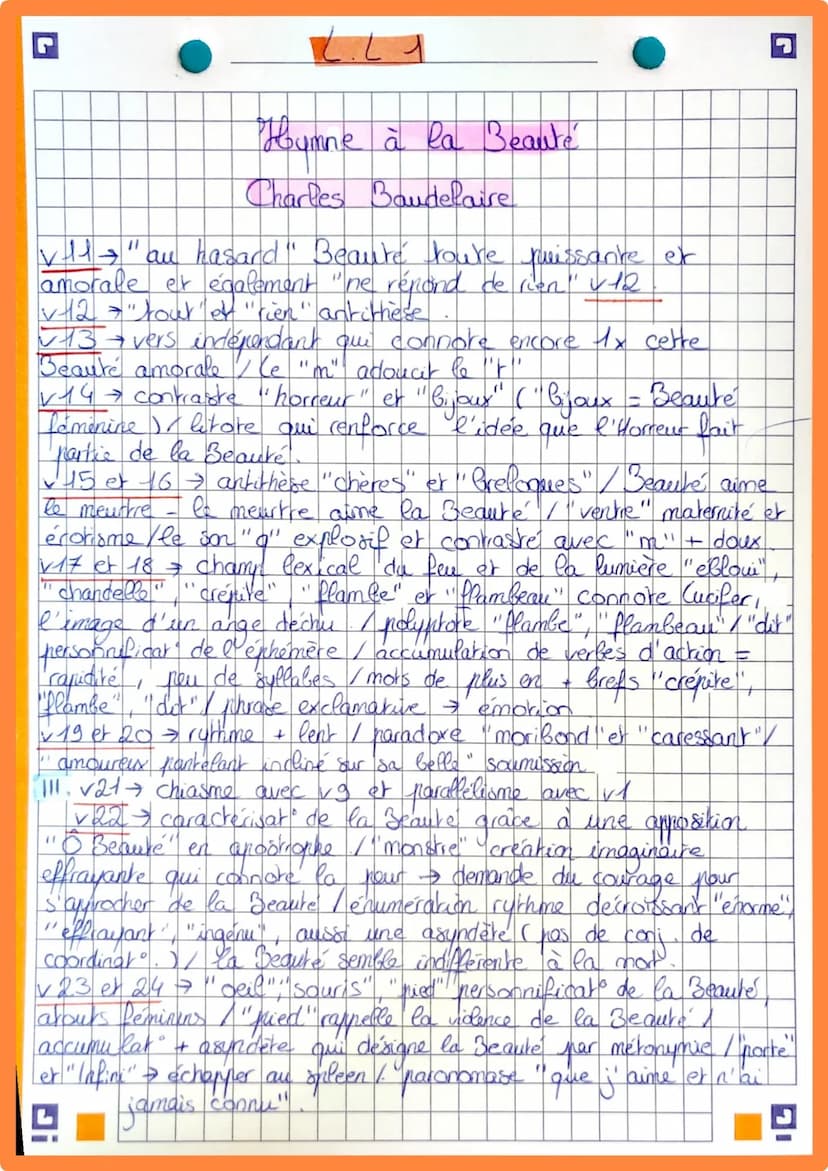 L.L 1
Hymne à la Beauté
Charles Baudelaire
v11 → "au hasard" Beauté toute puissante et
amorale et également "ne répond de rien" v12.
v12 → "tout" et "rien" antithèse.
v13 → vers indépendant qui connote encore 1x cette
Beauté amorale / Le "m" adoucit le "r"
v14 → contraste "horreur" et "bijoux" ("bijoux = Beauté
féminine) / litote qui renforce l'idée que l'Horreur fait
partie de la Beauté.
v15 et 16 → antithèse "chères" et "breloques" / Beauté aime
le meurtre - le meurtre aime la Beauté / "ventre" maternité et
érotisme / le son "q" explosif et contrasté avec "m" + doux.
v17 et 18 → champ lexical du feu et de la lumière "ébloui",
"chandelle", "crépite", "flambe" et "flambeau" connote Lucifer,
l'image d'un ange déchu. / polyptote "flambe", "flambeau" / "dit"
personnificat° de l'éphémère / accumulation de verbes d'action =
rapidité, peu de syllabes / mots de plus en + brefs "crépite",
"flambe", "dit" / phrase exclamative → émotion
v19 et 20 → rythme + lent / paradoxe "moribond" et "caressant" /
"amoureux pantelant incliné sur sa belle" soumission
III. v21 → chiasme avec v9 et parallélisme avec v1
v22 → caractérisat° de la Beauté grâce à une apposition
"Ô Beauté" en apostrophe / "monstre" création imaginaire
effrayante qui connote la peur → demande du courage pour
s'approcher de la Beauté / énumération rythme décroissant "énorme",
"effrayant", "ingénu", aussi une asyndète (pas de conj. de
coordinat°.) / La Beauté semble indifférente à la mort.
v23 et 24 → "oeil", "souris", "pied" personnificat° de la Beauté,
atouts féminins / "pied" rappelle la violence de la Beauté /
accumulat° + asyndète qui désigne la Beauté par métonymie / "porte"
et "Infini" → échapper au spleen /. paronomase "que j'aime et n'ai
jamais connu".